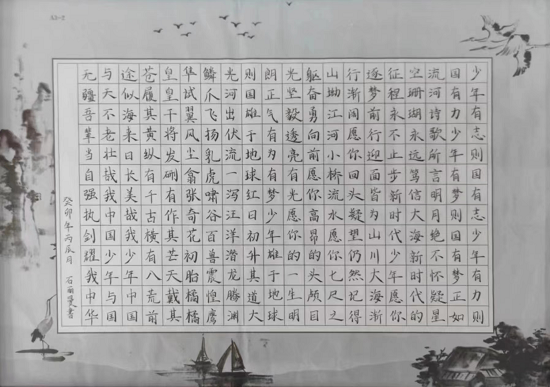 少年有志则国有志少年有力则
国有力少年有梦则国有梦正如
流河诗歌所言明月绝不怀疑星
空珊湖永远笃信大海新时代的
征程永不止步新时代少年愿你
逐梦前行迎面皆为山川大海渐
行渐阔愿你回头疑望仍然记得
山坳江河小桥流水愿你七尺之
躯奋勇向前愿你高昂的头颅目
光坚毅透亮有光愿你的一生明
朗正气有为有梦少年雄于地球
则国雄于地球红日初升其道大
光河出伏流一泻汪洋潜龙腾渊
鳞爪飞扬乳虎啸谷百兽震惶鹰
隼试翼风尘翕张奇花初胎橘橘
皇皇干将发硎有作其芒天戴其
苍履其黄纵有千古横有八荒前
途似海来日长美哉我少年中国
与天不老壮哉我中国少年与国
无疆吾辈当自强执剑耀我中华
癸卯年丙辰月 石丽书